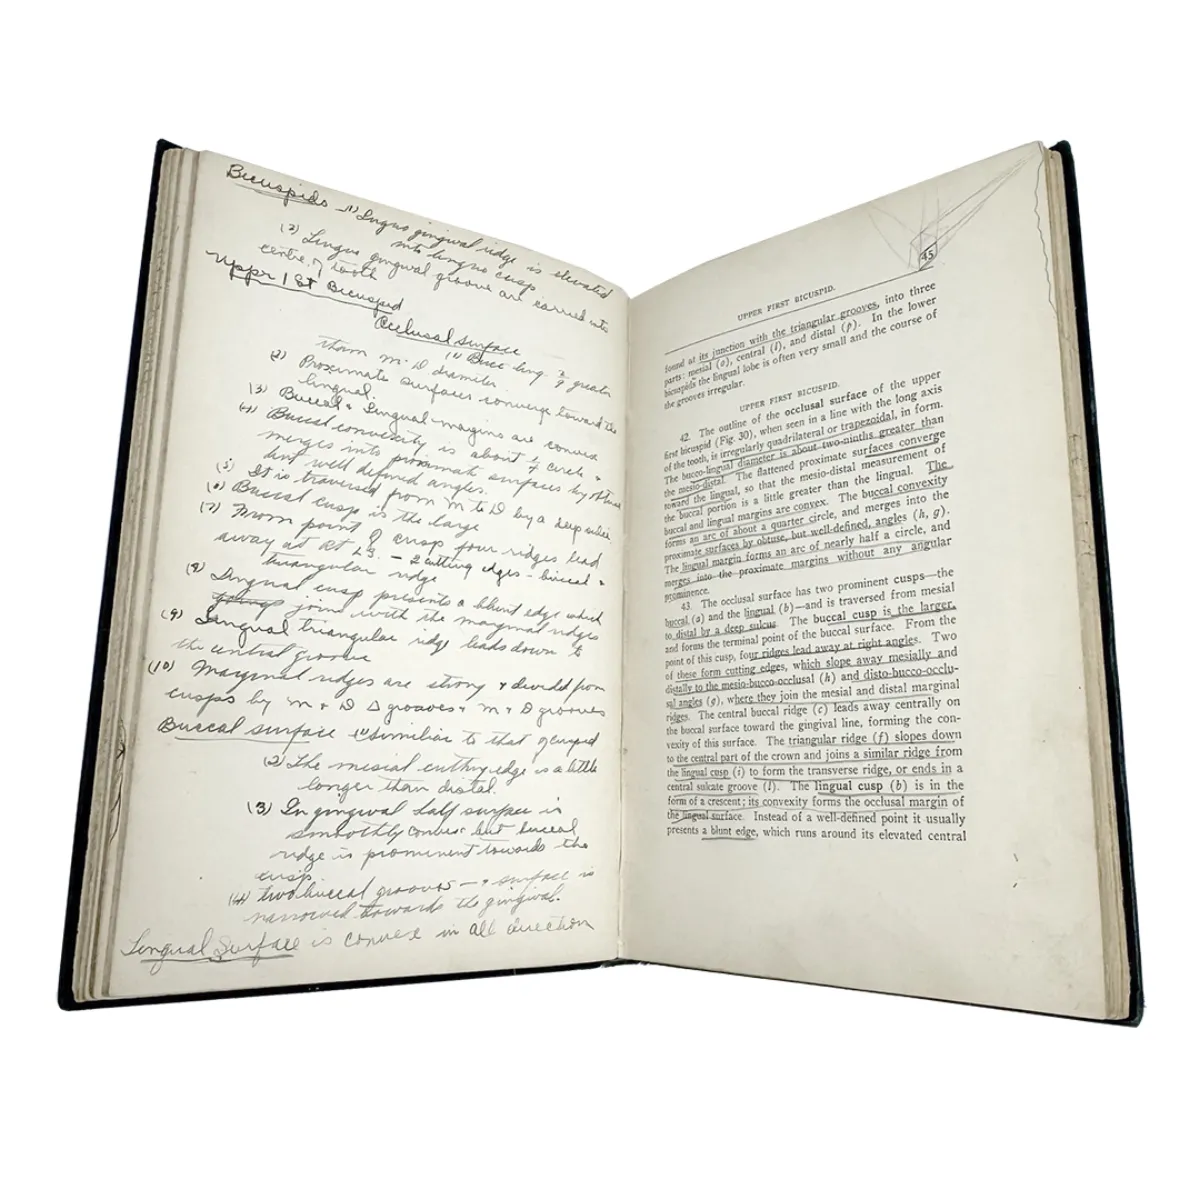 Bicuspids - (1) Linguo gingival ridge is elevated
into linguo cusp
(2) Linguo gingival groove are carried into
centre of tooth
Upper 1st Bicuspid
Occlusal surface
(1) Bucc-ling 2/9 greater
than M-D diameter.
(2) Proximate surfaces converge toward the
lingual.
(3) Buccal & Lingual margins are convex
(4) Buccal convexity is about 1/4 circle &
merges into proximate surfaces by obtuse
but well defined angles.
(5) It is traversed from M to D by a deep sulcus
(6) Buccal cusp is the large
(7) From point of cusp four ridges lead
away at Rt Ls. - 2 cutting edges - buccal &
triangular ridge
(8) Lingual cusp presents a blunt edge which
joins with the marginal ridges
(9) Lingual triangular ridge leads down to
the central groove
(10) Marginal ridges are strong & divided from
cusps by M & D Δ grooves & M & D grooves
Buccal surface (1) Similiar to that of cuspid
(2) The mesial cutting edge is a little
longer than distal.
(3) In gingival half surface is
smoothly convex but buccal
ridge is prominent towards the
cusp.
(4) two buccal grooves - & surface is
narrowed towards the gingival.
Lingual Surface is convex in all direction
45
UPPER FIRST BICUSPID.
found at its junction with the triangular grooves, into three
parts: mesial (o), central (l), and distal (p). In the lower
bicuspids the lingual lobe is often very small and the course of
the grooves irregular.
UPPER FIRST BICUSPID.
42. The outline of the occlusal surface of the upper
first bicuspid (Fig. 30), when seen in a line with the long axis
of the tooth, is irregularly quadrilateral or trapezoidal, in form.
The bucco-lingual diameter is about two-ninths greater than
the mesio-distal. The flattened proximate surfaces converge
toward the lingual, so that the mesio-distal measurement of
the buccal portion is a little greater than the lingual. The
buccal and lingual margins are convex. The buccal convexity
forms an arc of about a quarter circle, and merges into the
proximate surfaces by obtuse, but well-defined, angles (h, g).
The lingual margin forms an arc of nearly half a circle, and
merges into the proximate margins without any angular
prominence.
43. The occlusal surface has two prominent cusps—the
buccal (a) and the lingual (b)—and is traversed from mesial
to distal by a deep sulcus. The buccal cusp is the larger,
and forms the terminal point of the buccal surface. From the
point of this cusp, four ridges lead away at right angles. Two
of these form cutting edges, which slope away mesially and
distally to the mesio-bucco-occlusal (h) and disto-bucco-occlu-
sal angles (g), where they join the mesial and distal marginal
ridges. The central buccal ridge (c) leads away centrally on
the buccal surface toward the gingival line, forming the con-
vexity of this surface. The triangular ridge (f) slopes down
to the central part of the crown and joins a similar ridge from
the lingual cusp (i) to form the transverse ridge, or ends in a
central sulcate groove (l). The lingual cusp (b) is in the
form of a crescent; its convexity forms the occlusal margin of
the lingual surface. Instead of a well-defined point it usually
presents a blunt edge, which runs around its elevated central